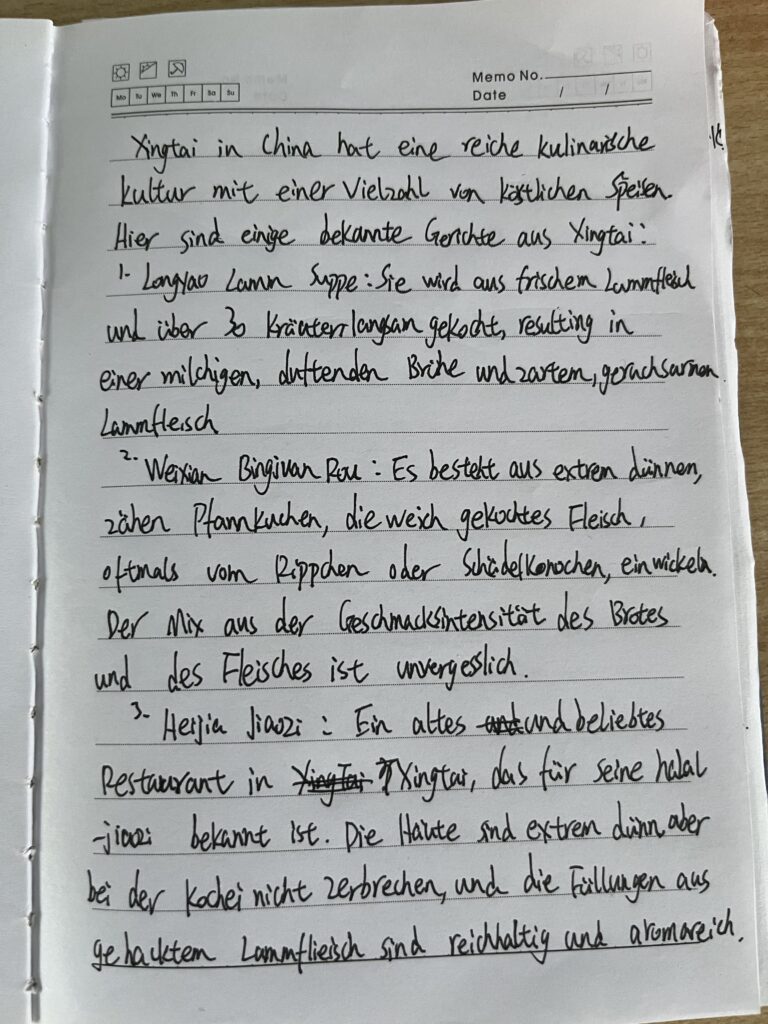 Memo No.
Mo Tu We Th Fr Sa Su
Date / /
Xingtai in China hat eine reiche kulinarische
kultur mit einer Vielzahl von köstlichen Speisen.
Hier sind einige bekannte Gerichte aus Xingtai:
1. Longyao Lamm Suppe: Sie wird aus frischem Lammfleisch
und über 30 Kräutern langsam gekocht, resulting in
einer milchigen, duftenden Brühe und zartem, geruchsarmen
Lammfleisch
2. Weixian Bingivan Rou: Es besteht aus extrem dünnen,
zähen Pfannkuchen, die weich gekochtes Fleisch,
oftmals vom Rippchen oder Schädelkonochen, einwickeln.
Der Mix aus der Geschmacksintensität des Brotes
und des Fleisches ist unvergesslich.
3. Heijia Jiaozi: Ein altes und und beliebtes
Restaurant in XingTai Xingtai, das für seine halal
-jiaozi bekannt ist. Die Häute sind extrem dünn, aber
bei der Kochei nicht zerbrechen, und die Füllungen aus
gehacktem Lammflieisch sind reichhaltig und aromareich.